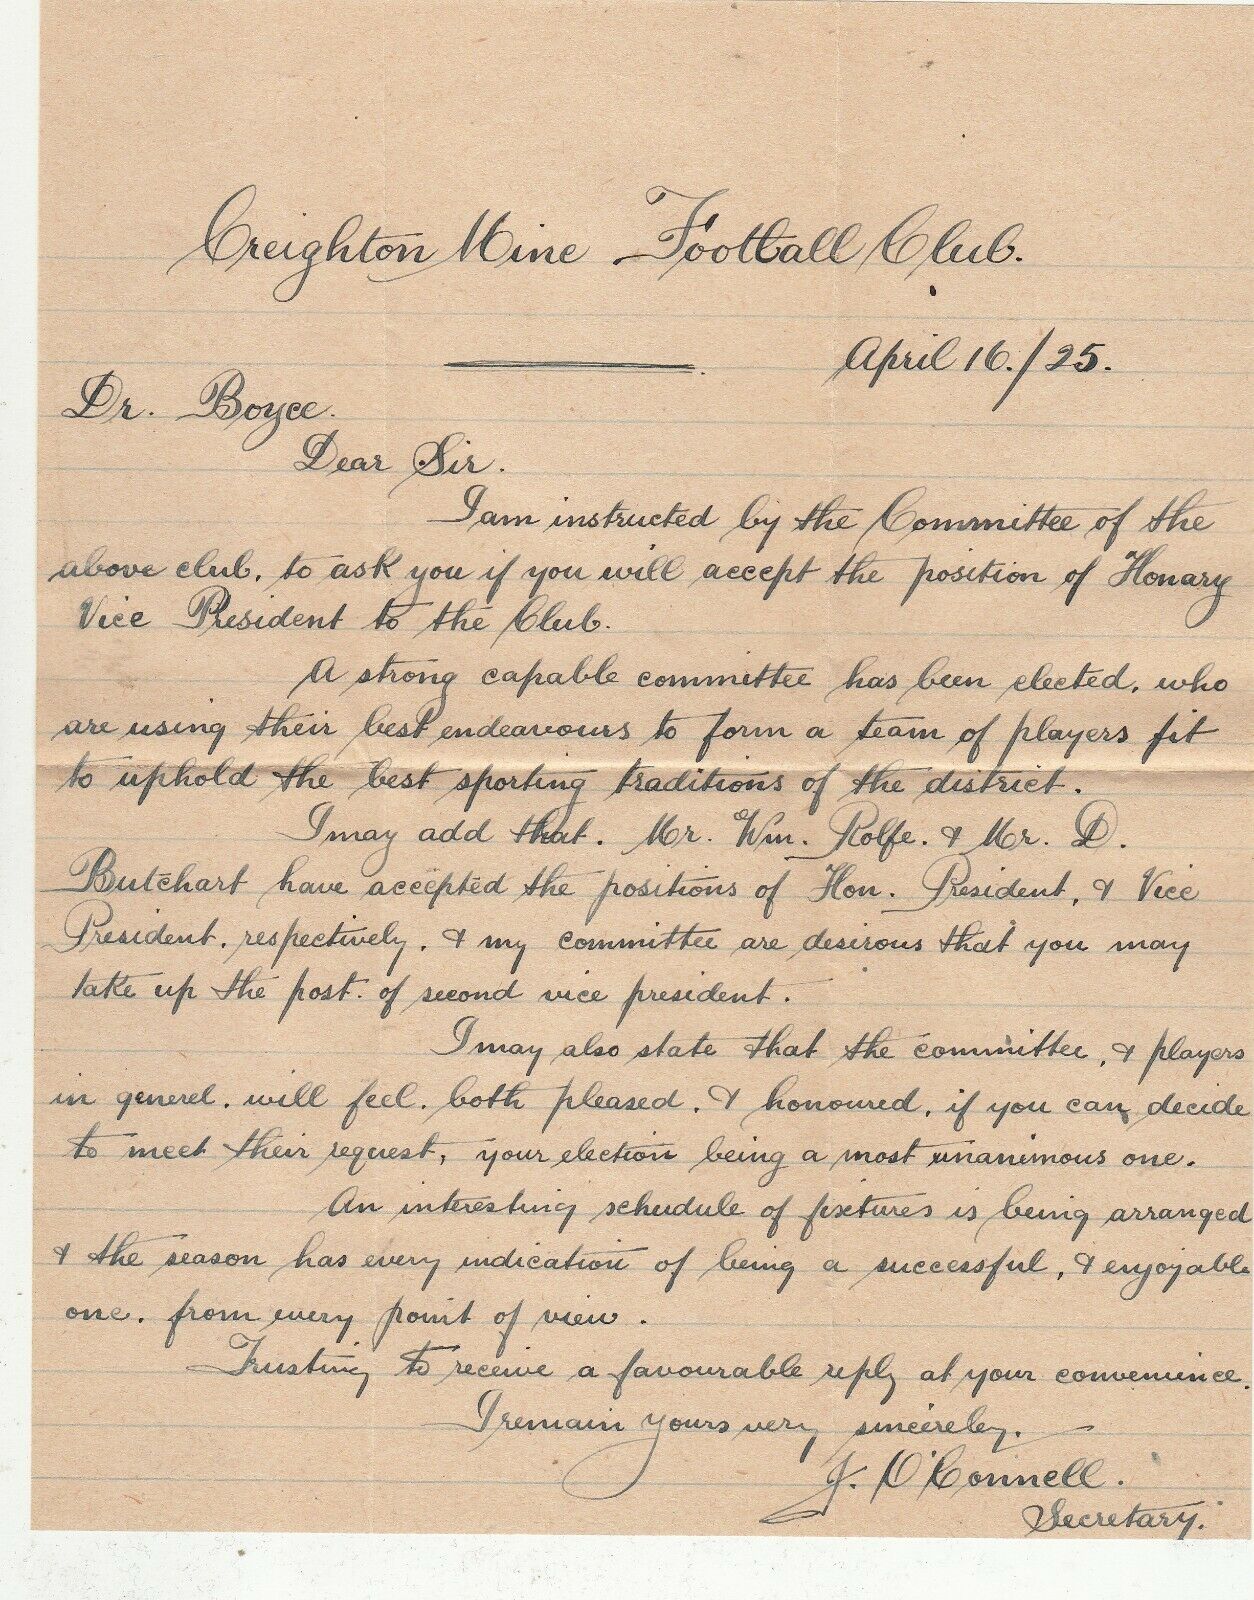 Creighton Mine Football Club.
April 16./25.
Dr. Boyce.
Dear Sir.
I am instructed by the Committee of the
above club. to ask you if you will accept the position of Honary
Vice President to the Club.
A strong capable committee has been elected. who
are using their best endeavours to form a team of players fit
to uphold the best sporting traditions of the district.
I may add that. Mr. Wm. Rolfe. & Mr. D.
Butchart have accepted the positions of Hon. President, & Vice
President. respectively. & my committee are desirous that you may
take up the post. of second vice president.
I may also state that the committee, & players
in generel. will feel. both pleased. & honoured. if you can decide
to meet their request, your election being a most unanimous one.
An interesting schedule of fixtures is being arranged
& the season has every indication of being a successful, & enjoyable
one. from every point of view.
Trusting to receive a favourable reply at your convenience.
I remain yours very sincereley.
J. O'Connell.
Secretary.